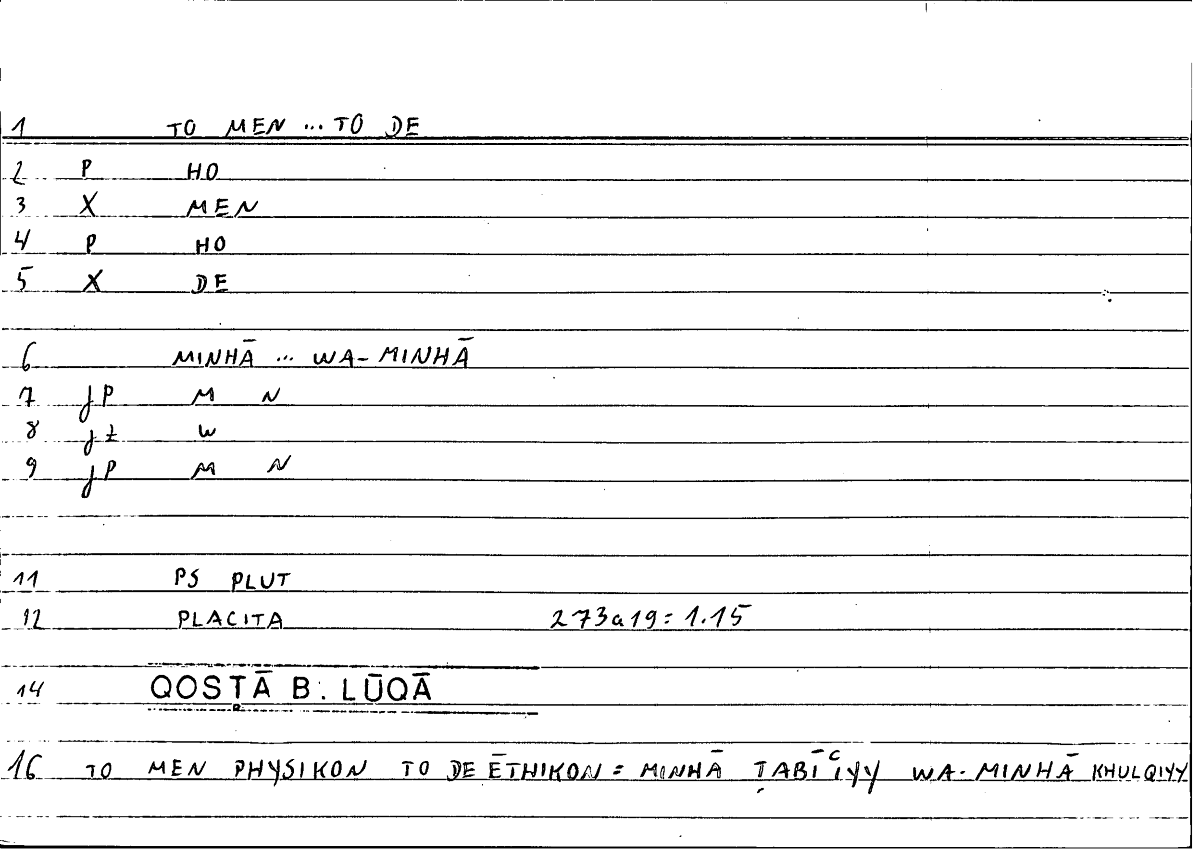 1 TO MEN ... TO DE
2 P HO
3 X MEN
4 P HO
5 X DE
6 MINHĀ ... WA-MINHĀ
7 jP M N
8 jz W
9 jP M N
11 PS PLUT
12 PLACITA 273a19 = 1.15
14 QOSṬĀ B. LŪQĀ
16 TO MEN PHYSIKON TO DE ĒTHIKON = MINHĀ ṬABĪʿIYY WA-MINHĀ KHULQIYY